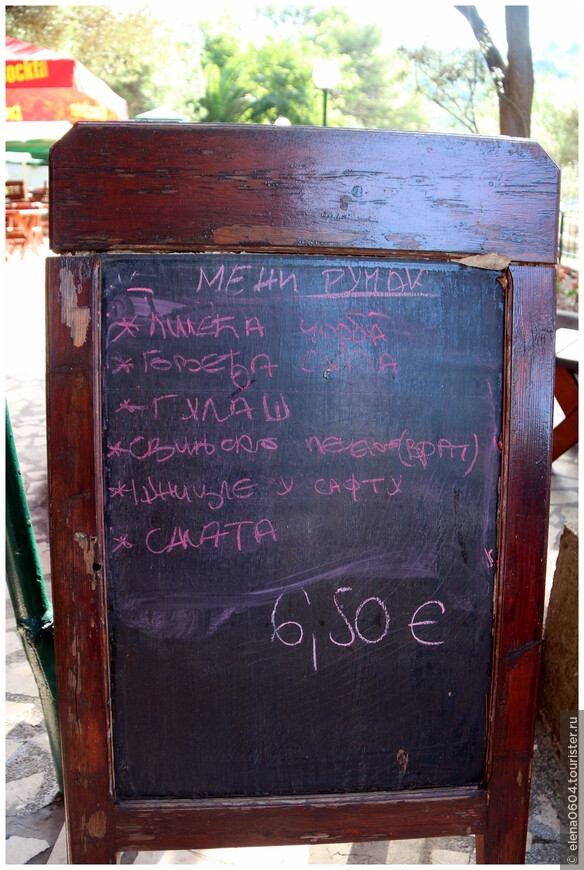 оскта
МЕНИ РУЧАК
*ПИЛЕЋА ЧОРБА
*ГОВЕЂА СУПА
*ГУЛАШ
*СВИЊСКО ПЕЧЕЊЕ(ВРАТ)
*ШНИЦЛЕ У САФТУ
*САЛАТА
6,50 €
© elena0604.tourister.ru